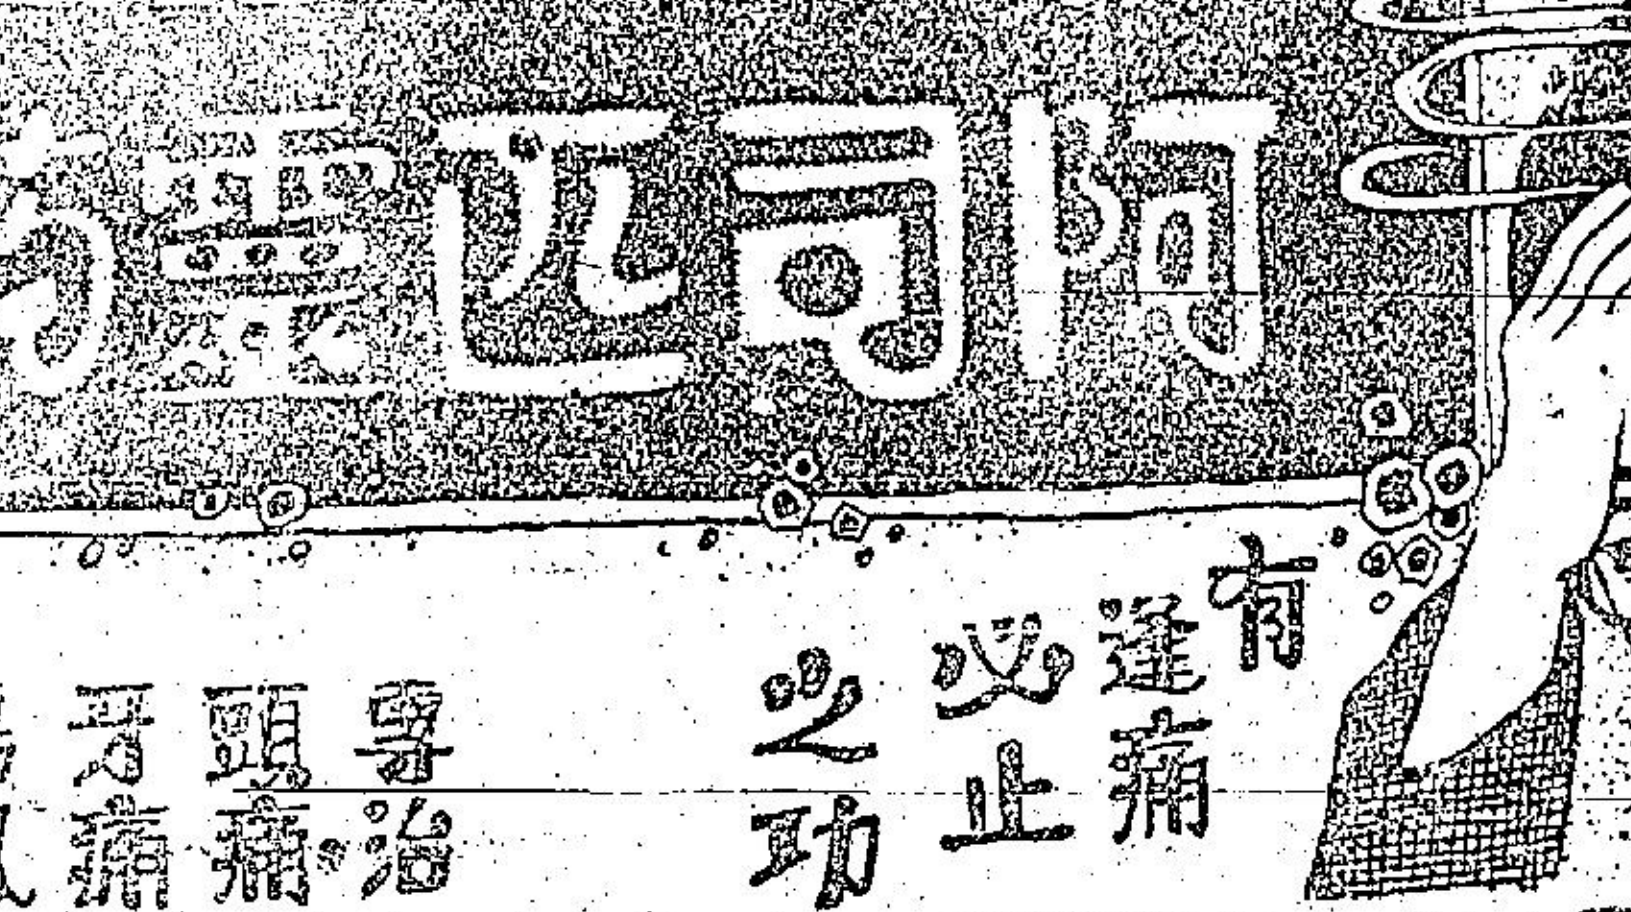 阿司匹靈
有
逢痛
必止
之功
專治
頭痛
牙痛